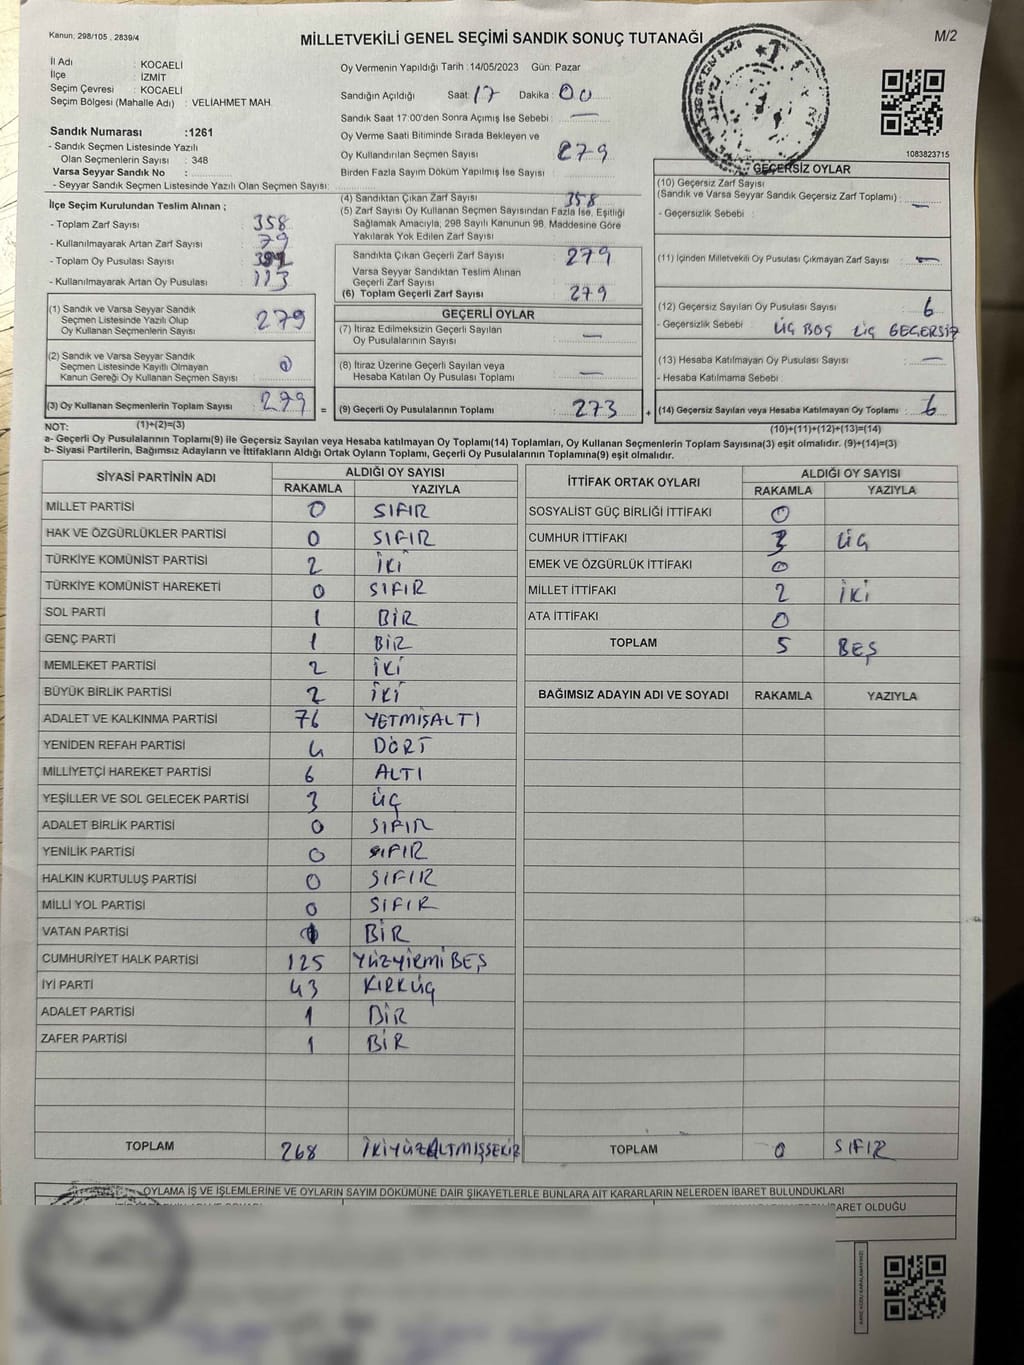 Kanun; 298/105 , 2839/4
MİLLETVEKİLİ GENEL SEÇİMİ SANDIK SONUÇ TUTANAĞI
M/2
İl Adı : KOCAELİ
İlçe : İZMİT
Seçim Çevresi : KOCAELİ
Seçim Bölgesi (Mahalle Adı) : VELİAHMET MAH.
Sandık Numarası :1261
- Sandık Seçmen Listesinde Yazılı
Olan Seçmenlerin Sayısı : 348
Varsa Seyyar Sandık No :
- Seyyar Sandık Seçmen Listesinde Yazılı Olan Seçmen Sayısı:
İlçe Seçim Kurulundan Teslim Alınan ;
- Toplam Zarf Sayısı 358
- Kullanılmayarak Artan Zarf Sayısı : 79
- Toplam Oy Pusulası Sayısı
- Kullanılmayarak Artan Oy Pusulası : 113
(1) Sandık ve Varsa Seyyar Sandık
Seçmen Listesinde Yazılı Olup
Oy Kullanan Seçmenlerin Sayısı : 279
(2) Sandık ve Varsa Seyyar Sandık
Seçmen Listesinde Kayıtlı Olmayan
Kanun Gereği Oy Kullanan Seçmen Sayısı : 0
(3) Oy Kullanan Seçmenlerin Toplam Sayısı : 279
Oy Vermenin Yapıldığı Tarih : 14/05/2023 Gün: Pazar
Sandığın Açıldığı Saat: 17 Dakika : 00
Sandık Saat 17:00'den Sonra Açımış İse Sebebi : —
Oy Verme Saati Bitiminde Sırada Bekleyen ve
Oy Kullandırılan Seçmen Sayısı : 279
Birden Fazla Sayım Döküm Yapılmış İse Sayısı :
(4) Sandıktan Çıkan Zarf Sayısı : 358
(5) Zarf Sayısı Oy Kullanan Seçmen Sayısından Fazla İse, Eşitliği
Sağlamak Amacıyla, 298 Sayılı Kanunun 98. Maddesine Göre
Yakılarak Yok Edilen Zarf Sayısı :
Sandıkta Çıkan Geçerli Zarf Sayısı : 279
Varsa Seyyar Sandıktan Teslim Alınan
Geçerli Zarf Sayısı :
(6) Toplam Geçerli Zarf Sayısı : 279
GEÇERLİ OYLAR
(7) İtiraz Edilmeksizin Geçerli Sayılan
Oy Pusulalarının Sayısı : —
(8) İtiraz Üzerine Geçerli Sayılan veya
Hesaba Katılan Oy Pusulası Toplamı : —
= (9) Geçerli Oy Pusulalarının Toplamı : 273
1083823715
GEÇERSİZ OYLAR
(10) Geçersiz Zarf Sayısı
(Sandık ve Varsa Seyyar Sandık Geçersiz Zarf Toplamı) : —
- Geçersizlik Sebebi :
(11) İçinden Milletvekili Oy Pusulası Çıkmayan Zarf Sayısı : —
(12) Geçersiz Sayılan Oy Pusulası Sayısı : 6
- Geçersizlik Sebebi : ÜÇ BOŞ ÜÇ GEÇERSİZ
(13) Hesaba Katılmayan Oy Pusulası Sayısı : —
- Hesaba Katılmama Sebebi :
+ (14) Geçersiz Sayılan veya Hesaba Katılmayan Oy Toplamı : 6
NOT: (1)+(2)=(3)
(10)+(11)+(12)+(13)=(14)
a- Geçerli Oy Pusulalarının Toplamı(9) ile Geçersiz Sayılan veya Hesaba katılmayan Oy Toplamı(14) Toplamları, Oy Kullanan Seçmenlerin Toplam Sayısına(3) eşit olmalıdır. (9)+(14)=(3)
b- Siyasi Partilerin, Bağımsız Adayların ve İttifakların Aldığı Ortak Oyların Toplamı, Geçerli Oy Pusulalarının Toplamına(9) eşit olmalıdır.
SİYASİ PARTİNİN ADI ALDIĞI OY SAYISI
RAKAMLA YAZIYLA
MİLLET PARTİSİ 0 SIFIR
HAK VE ÖZGÜRLÜKLER PARTİSİ 0 SIFIR
TÜRKİYE KOMÜNİST PARTİSİ 2 İKİ
TÜRKİYE KOMÜNİST HAREKETİ 0 SIFIR
SOL PARTİ 1 BİR
GENÇ PARTİ 1 BİR
MEMLEKET PARTİSİ 2 İKİ
BÜYÜK BİRLİK PARTİSİ 2 İKİ
ADALET VE KALKINMA PARTİSİ 76 YETMİŞALTI
YENİDEN REFAH PARTİSİ 4 DÖRT
MİLLİYETÇİ HAREKET PARTİSİ 6 ALTI
YEŞİLLER VE SOL GELECEK PARTİSİ 3 ÜÇ
ADALET BİRLİK PARTİSİ 0 SIFIR
YENİLİK PARTİSİ 0 SIFIR
HALKIN KURTULUŞ PARTİSİ 0 SIFIR
MİLLİ YOL PARTİSİ 0 SIFIR
VATAN PARTİSİ 1 BİR
CUMHURİYET HALK PARTİSİ 125 YÜZYİRMİBEŞ
İYİ PARTİ 43 KIRKÜÇ
ADALET PARTİSİ 1 BİR
ZAFER PARTİSİ 1 BİR
TOPLAM 268 İKİYÜZALTMIŞSEKİZ
İTTİFAK ORTAK OYLARI ALDIĞI OY SAYISI
RAKAMLA YAZIYLA
SOSYALİST GÜÇ BİRLİĞİ İTTİFAKI 0
CUMHUR İTTİFAKI 3 ÜÇ
EMEK VE ÖZGÜRLÜK İTTİFAKI 0
MİLLET İTTİFAKI 2 İKİ
ATA İTTİFAKI 0
TOPLAM 5 BEŞ
BAĞIMSIZ ADAYIN ADI VE SOYADI RAKAMLA YAZIYLA
TOPLAM 0 SIFIR
OYLAMA İŞ VE İŞLEMLERİNE VE OYLARIN SAYIM DÖKÜMÜNE DAİR ŞİKAYETLERLE BUNLARA AİT KARARLARIN NELERDEN İBARET BULUNDUKLARI
İBARET OLDUĞU